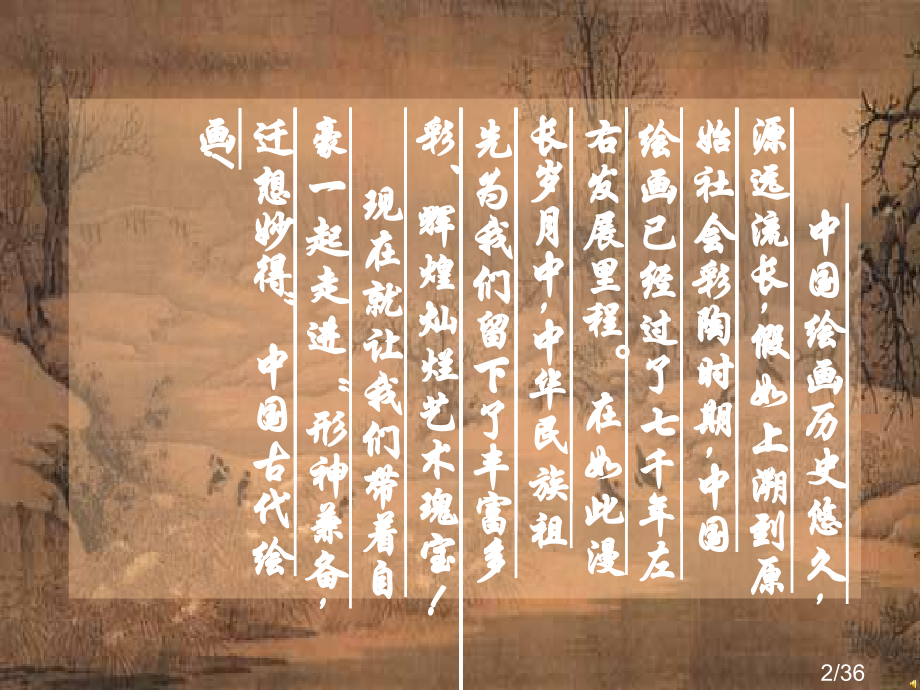 中国绘画历史悠久，
源远流长，假如上溯到原
始社会彩陶时期，中国
绘画已经过了七千年左
右发展里程。在如此漫
长岁月中，中华民族祖
先为我们留下了丰富多
彩、辉煌灿烂艺术瑰宝！
现在就让我们带着自
豪一起走进“形神兼备，
迁想妙得”中国古代绘
画、
2/36